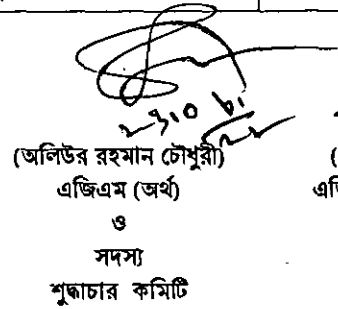 (অলিউর রহমান চৌধুরী)
এজিএম (অর্থ)
ও
সদস্য
শুদ্ধাচার কমিটি